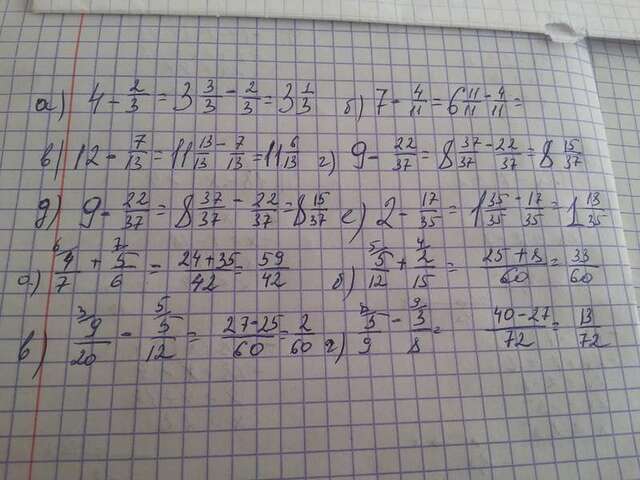 а) 4 - 2/3 = 3 3/3 - 2/3 = 3 1/3 б) 7 - 4/11 = 6 11/11 - 4/11 =
в) 12 - 7/13 = 11 13/13 - 7/13 = 11 6/13 г) 9 - 22/37 = 8 37/37 - 22/37 = 8 15/37
д) 9 - 22/37 = 8 37/37 - 22/37 = 8 15/37 е) 2 - 17/35 = 1 35/35 - 17/35 = 1 13/35
а) 6 4/7 + 7 5/6 = 24+35/42 = 59/42 б) 5 5/12 + 4 2/15 = 25+8/60 = 33/60
в) 3 9/20 - 5 5/12 = 27-25/60 = 2/60 г) 8 5/9 - 9 3/8 = 40-27/72 = 13/72